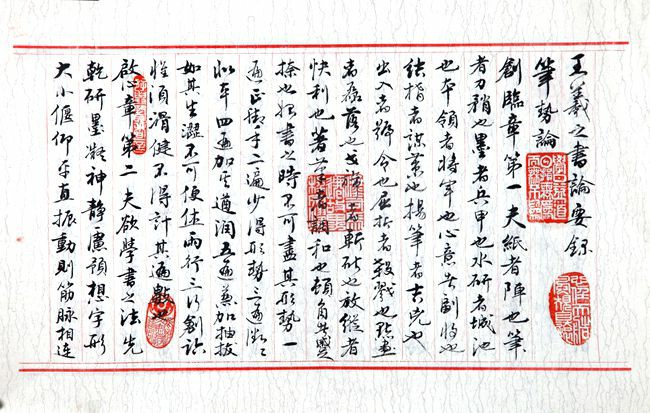 王羲之書論要録
筆勢論
創臨章第一夫紙者陣也筆
者刀矟也墨者兵甲也水研者城池
也本領者將軍也心意者副將也
結構者謀策也揚筆者吉凶也
出入者號令也屈折者殺戮也點畫
者磊落也戈旆者斬斫也放縱者
快利也著筆者調和也頓角者蹙
捺也始書之時不可盡其形勢一
遍正腳手二遍少得形勢三遍微微
似本四遍加其遒潤五遍兼加抽拔
如其生澀不可便住兩行三行創臨
惟須滑健不得計其遍數也
啟心章第二夫欲學書之法先
乾研墨凝神靜慮預想字形
大小偃仰平直振動則筋脉相連